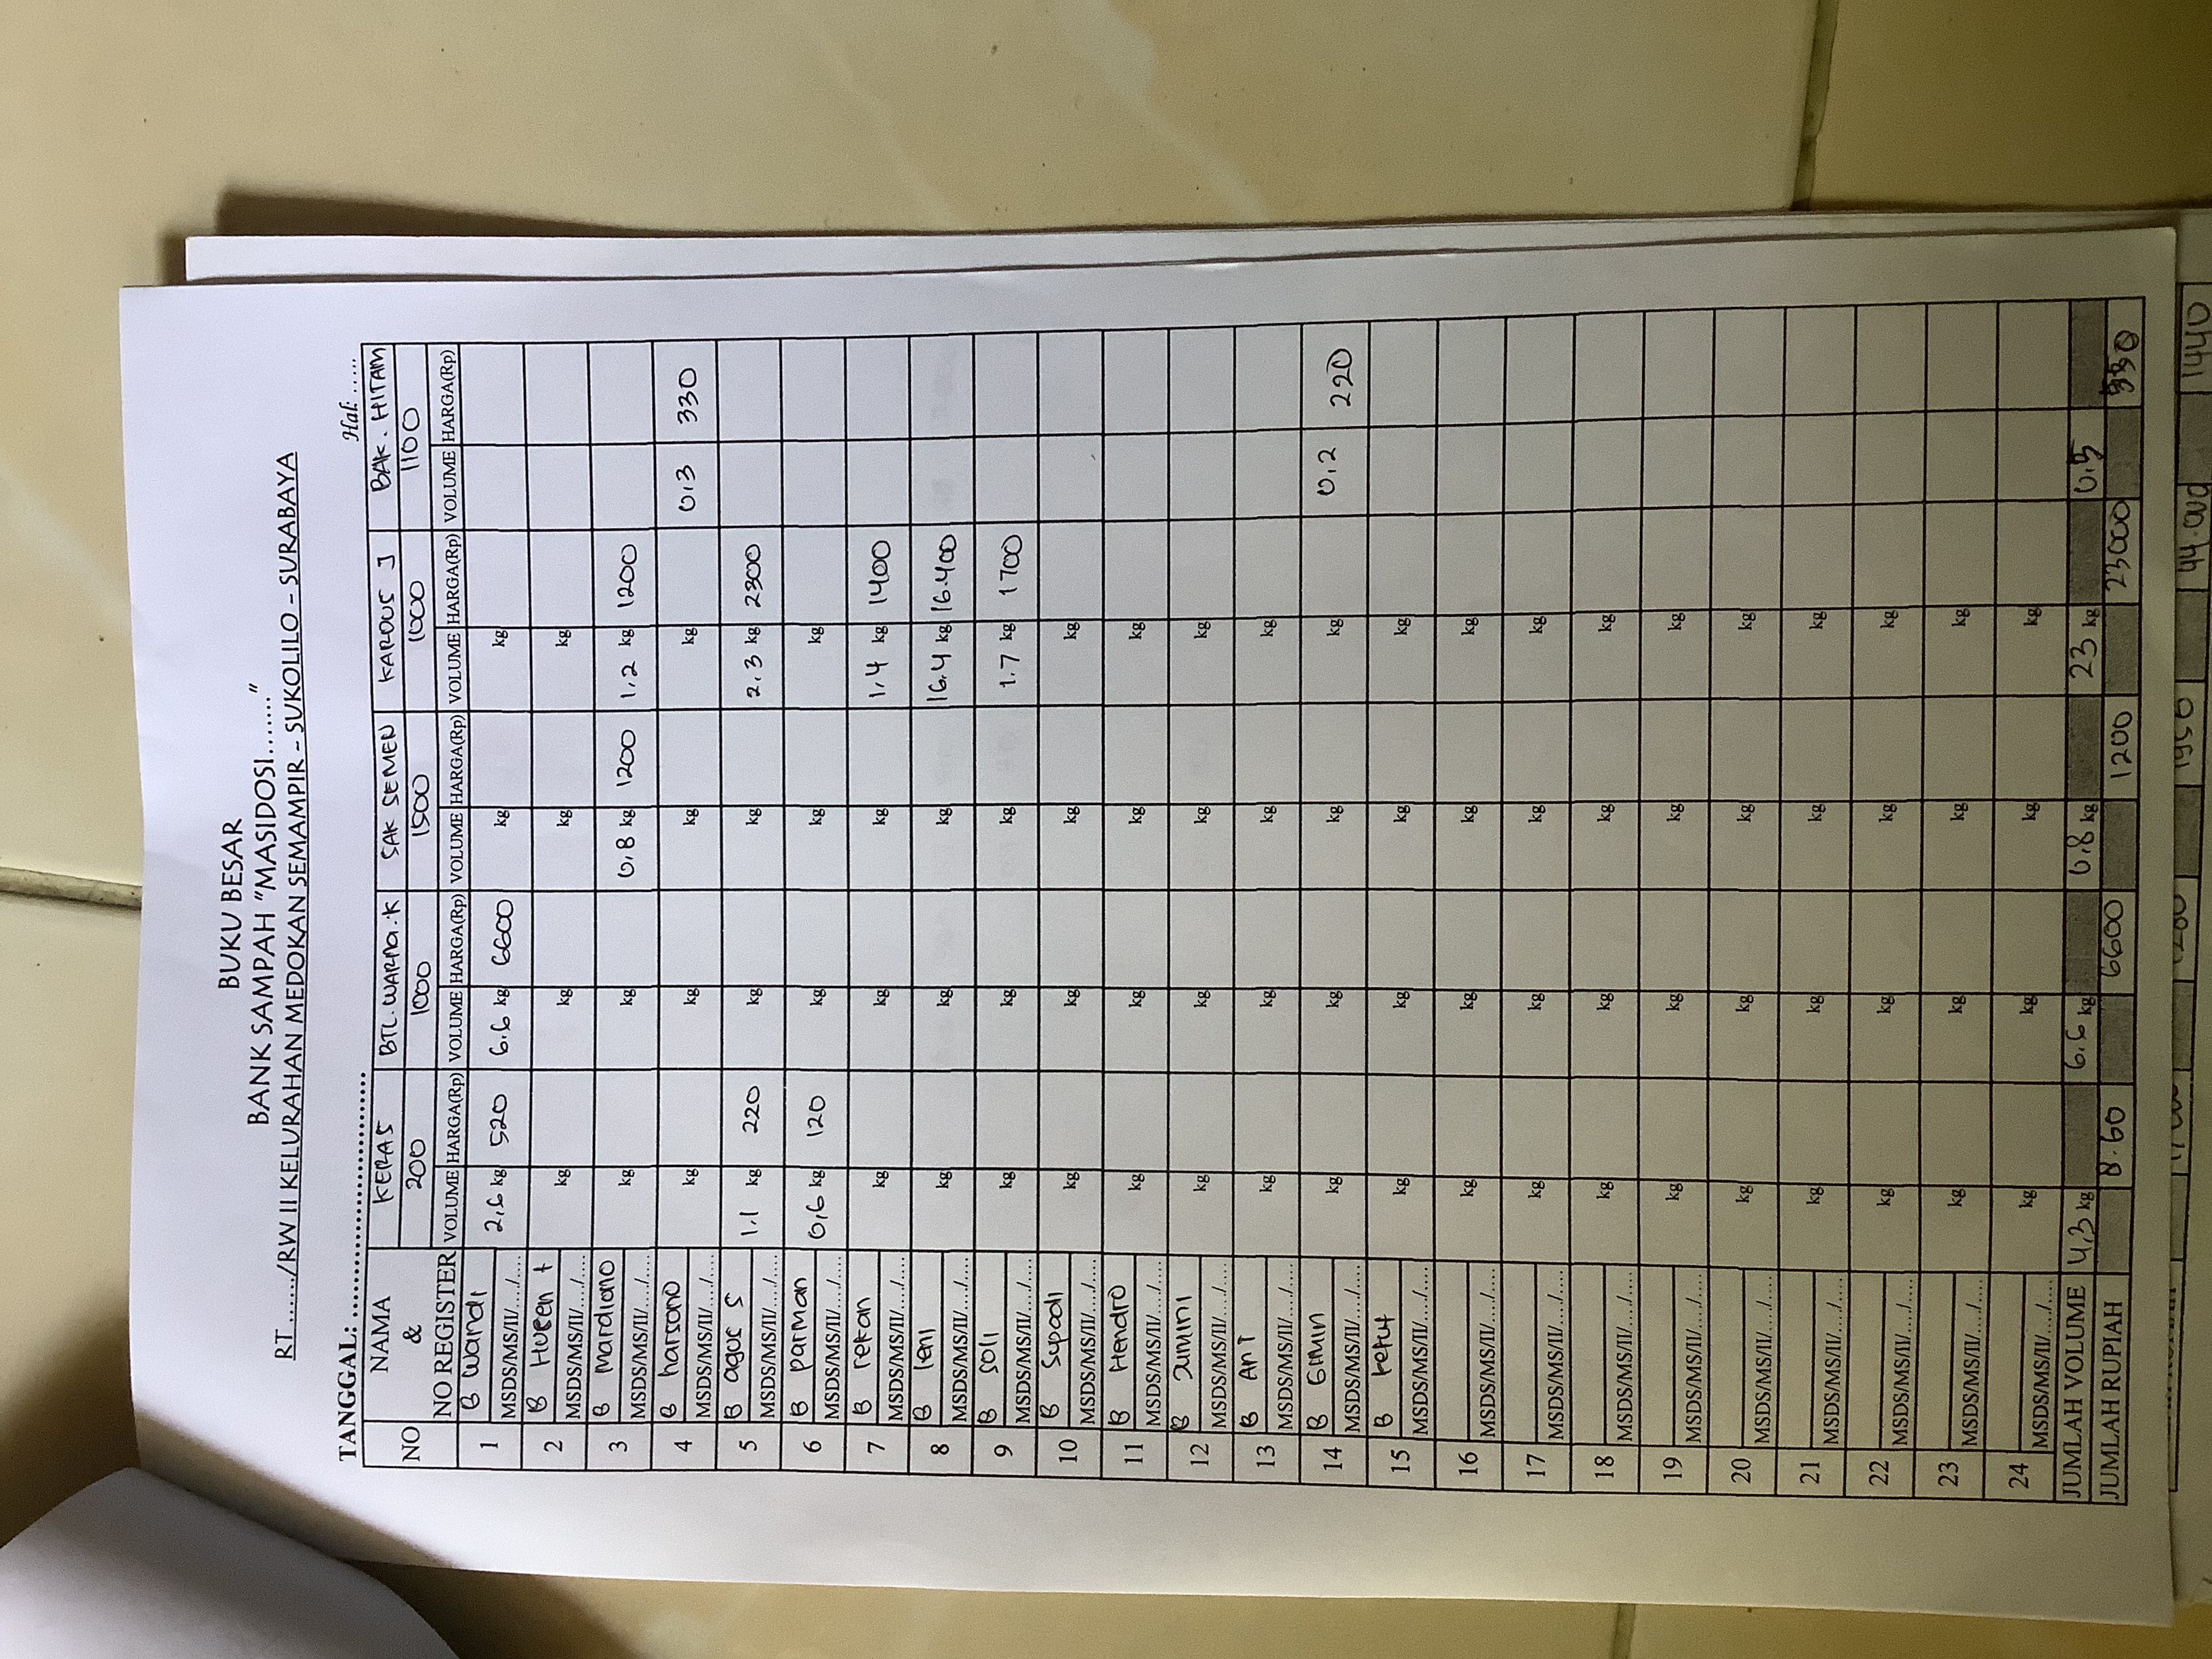 BUKU BESAR
BANK SAMPAH "MASIDOSI......."
RT ....../RW II KELURAHAN MEDOKAN SEMAMPIR - SUKOLILO - SURABAYA
TANGGAL: ............................. Hal: .....
NO NAMA & NO REGISTER KERAS BTL.WARNA.K SAK SEMEN KARDUS J BAK. HITAM
200 1000 1500 1000 1100
VOLUME HARGA(Rp) VOLUME HARGA(Rp) VOLUME HARGA(Rp) VOLUME HARGA(Rp) VOLUME HARGA(Rp)
1 B wandi
MSDS/MS/II/..../.... 2,6 kg 520 6.6 kg 6600 kg kg
2 B Husen t
MSDS/MS/II/..../.... kg kg kg kg
3 B Mardiono
MSDS/MS/II/..../.... kg kg 0,8 kg 1200 1,2 kg 1200
4 B harsono
MSDS/MS/II/..../.... kg kg kg kg 0,3 330
5 B agus S
MSDS/MS/II/..../.... 1,1 kg 220 kg kg 2,3 kg 2300
6 B parman
MSDS/MS/II/..../.... 0,6 kg 120 kg kg kg
7 B rekan
MSDS/MS/II/..../.... kg kg kg 1,4 kg 1400
8 B leni
MSDS/MS/II/..../.... kg kg kg 16.4 kg 16.400
9 B soli
MSDS/MS/II/..../.... kg kg kg 1.7 kg 1700
10 B Supadi
MSDS/MS/II/..../.... kg kg kg kg
11 B Hendro
MSDS/MS/II/..../.... kg kg kg kg
12 B Jumini
MSDS/MS/II/..../.... kg kg kg kg
13 B Ani
MSDS/MS/II/..../.... kg kg kg kg
14 B Gimin
MSDS/MS/II/..../.... kg kg kg kg 0,2 220
15 B ketut
MSDS/MS/II/..../.... kg kg kg kg
16 MSDS/MS/II/..../.... kg kg kg kg
17 MSDS/MS/II/..../.... kg kg kg kg
18 MSDS/MS/II/..../.... kg kg kg kg
19 MSDS/MS/II/..../.... kg kg kg kg
20 MSDS/MS/II/..../.... kg kg kg kg
21 MSDS/MS/II/..../.... kg kg kg kg
22 MSDS/MS/II/..../.... kg kg kg kg
23 MSDS/MS/II/..../.... kg kg kg kg
24 MSDS/MS/II/..../.... kg kg kg kg
JUMLAH VOLUME 4,3 kg 6.6 kg 0,8 kg 23 kg 0,5
JUMLAH RUPIAH 8.60 6600 1200 23000 550
1950 44.000 1440